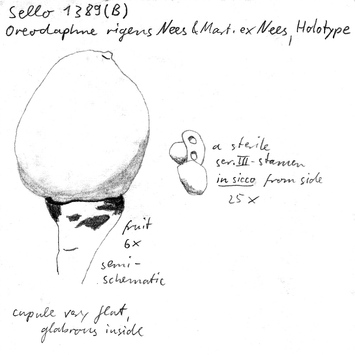 Sello 1389(B)
Oreodaphne rigens Nees & Mart. ex Nees, Holotype
a sterile
ser. III-stamen
in sicco from side
25 x
fruit
6x
semi-
schematic
cupule very flat,
glabrous inside